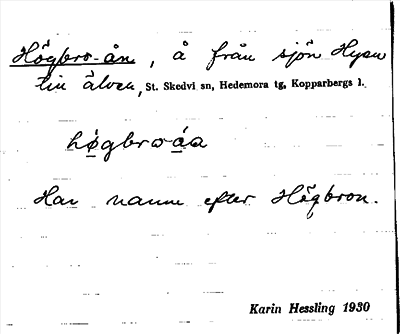 Högbro-ån, å från sjön Hysn
till älven, St. Skedvi sn, Hedemora tg, Kopparbergs l.
høgbroáa
Har namn efter Högbron.
Karin Hessling 1930